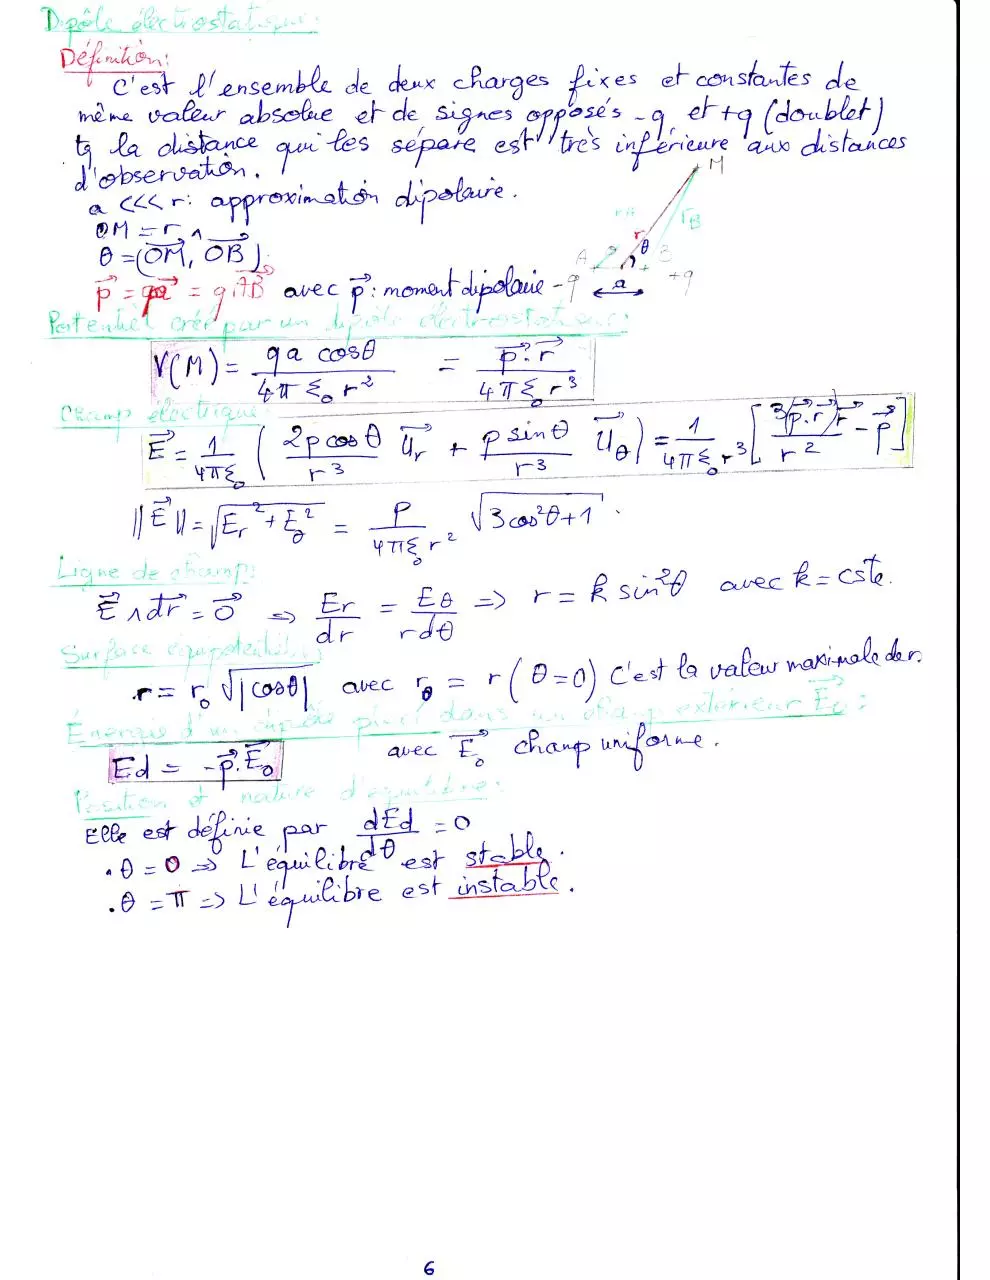 Dipôle électrostatique:
Définition:
C'est l'ensemble de deux charges fixes et constantes de
même valeur absolue et de signes opposés -q et +q (doublet)
tq la distance qui les sépare est très inférieure aux distances
d'observation.
a <<< r: approximation dipolaire.
OM = r
θ = (OM, OB)
p = qa = q.AB avec p: moment dipolaire
M
rA
rB
r
θ
A
B
-q
a
+q
Potentiel créé par un dipôle électrostatique:
V(M) = qa cosθ / 4πξ₀ r² = p.r / 4πξ₀ r³
Champ électrique:
E = 1/4πξ₀ ( 2p cosθ / r³ Ur + p sinθ / r³ Uθ ) = 1/4πξ₀ r³ [ 3(p.r)r / r² - p ]
||E|| = √(Er² + Eθ²) = P / 4πξ₀ r² √(3cos²θ+1) .
Ligne de champ:
E ∧ dr = 0 => Er/dr = Eθ/rdθ => r = k sin²θ avec k = cste.
Surface équipotentielle:
r = r₀ √|cosθ| avec r₀ = r(θ=0) c'est la valeur maximale de r.
Énergie d'un dipôle placé dans un champ extérieur E₀:
Ed = -p.E₀ avec E₀ champ uniforme.
Position et nature d'équilibre:
Elle est définie par dEd/dθ = 0
. θ = 0 => L'équilibre est stable.
. θ = π => L'équilibre est instable.
6